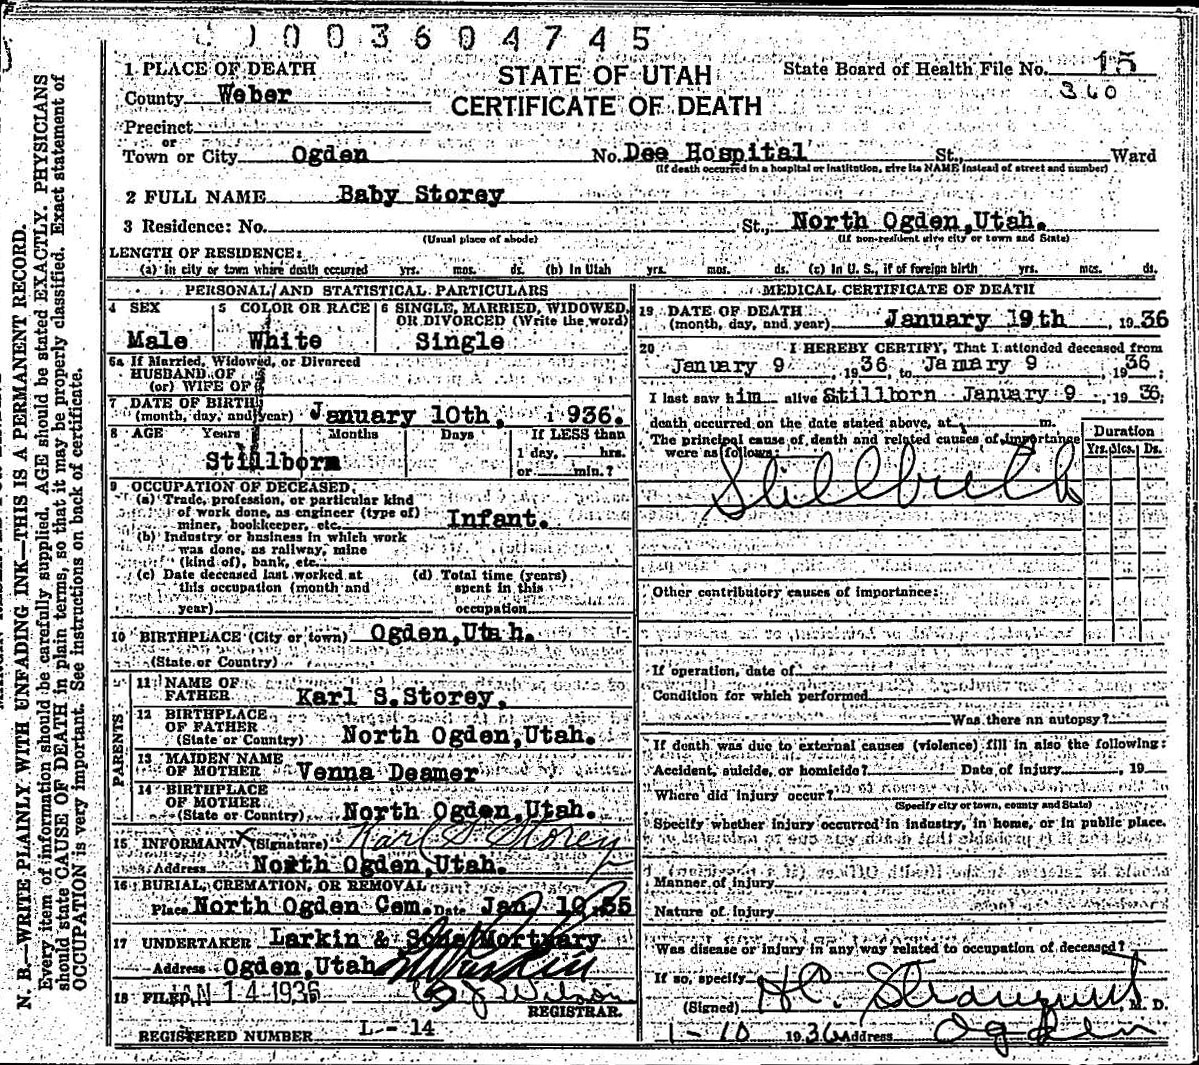 0003604745
1 PLACE OF DEATH
STATE OF UTAH
CERTIFICATE OF DEATH
State Board of Health File No. 15
360
County Weber
Precinct
or
Town or City Ogden No. Dee Hospital St., Ward
(If death occurred in a hospital or institution, give its NAME instead of street and number)
2 FULL NAME Baby Storey
3 Residence: No. St., North Ogden,Utah.
(Usual place of abode) (If non-resident give city or town and State)
LENGTH OF RESIDENCE:
(a) in city or town where death occurred yrs. mos. ds. (b) in Utah yrs. mos. ds. (c) in U. S., if of foreign birth yrs. mos. ds.
PERSONAL AND STATISTICAL PARTICULARS
4 SEX
Male
5 COLOR OR RACE
White
6 SINGLE, MARRIED, WIDOWED,
OR DIVORCED (Write the word)
Single
6a If Married, Widowed, or Divorced
HUSBAND OF
(or) WIFE OF
7 DATE OF BIRTH
(month, day, and year) January 10th, 1936.
8 AGE Years Months Days If LESS than
1 day, hrs.
or min.?
Stillborn
9 OCCUPATION OF DECEASED,
(a) Trade, profession, or particular kind
of work done, as engineer (type of)
miner, bookkeeper, etc. Infant.
(b) Industry or business in which work
was done, as railway, mine
(kind of), bank, etc.
(c) Date deceased last worked at
this occupation (month and
year)
(d) Total time (years)
spent in this
occupation
10 BIRTHPLACE (City or town) Ogden,Utah.
(State or Country)
PARENTS
11 NAME OF
FATHER Karl S.Storey.
12 BIRTHPLACE
OF FATHER
(State or Country) North Ogden,Utah.
13 MAIDEN NAME
OF MOTHER Venna Deamer
14 BIRTHPLACE
OF MOTHER
(State or Country) North Ogden,Utah.
15 INFORMANT (Signature) Karl S Storey
Address North Ogden,Utah.
16 BURIAL, CREMATION, OR REMOVAL
Place North Ogden Cem. Date Jan. 10,35
17 UNDERTAKER Larkin & Sons Mortuary
Address Ogden,Utah
18 FILED JAN 14 1936 Wilson
REGISTRAR.
REGISTERED NUMBER L - 14
MEDICAL CERTIFICATE OF DEATH
19 DATE OF DEATH
(month, day, and year) January 19th, 1936
20 I HEREBY CERTIFY, That I attended deceased from
January 9, 1936 to January 9, 1936.
I last saw him alive Stillborn January 9, 1936;
death occurred on the date stated above, at m.
The principal cause of death and related causes of importance
were as follows:
Duration
Yrs. Mos. Ds.
Stillbirth
Other contributory causes of importance:
If operation, date of
Condition for which performed
Was there an autopsy?
If death was due to external causes (violence) fill in also the following:
Accident, suicide, or homicide? Date of injury , 19
Where did injury occur?
(Specify city or town, county and State)
Specify whether injury occurred in industry, in home, or in public place.
Manner of injury
Nature of injury
Was disease or injury in any way related to occupation of deceased?
If so, specify
(Signed) M. D.
1-10 1936 Address Ogden
N. B.—WRITE PLAINLY, WITH UNFADING INK—THIS IS A PERMANENT RECORD.
Every item of information should be carefully supplied. AGE should be stated EXACTLY. PHYSICIANS
should state CAUSE OF DEATH in plain terms, so that it may be properly classified. Exact statement of
OCCUPATION is very important. See instructions on back of cerficate.